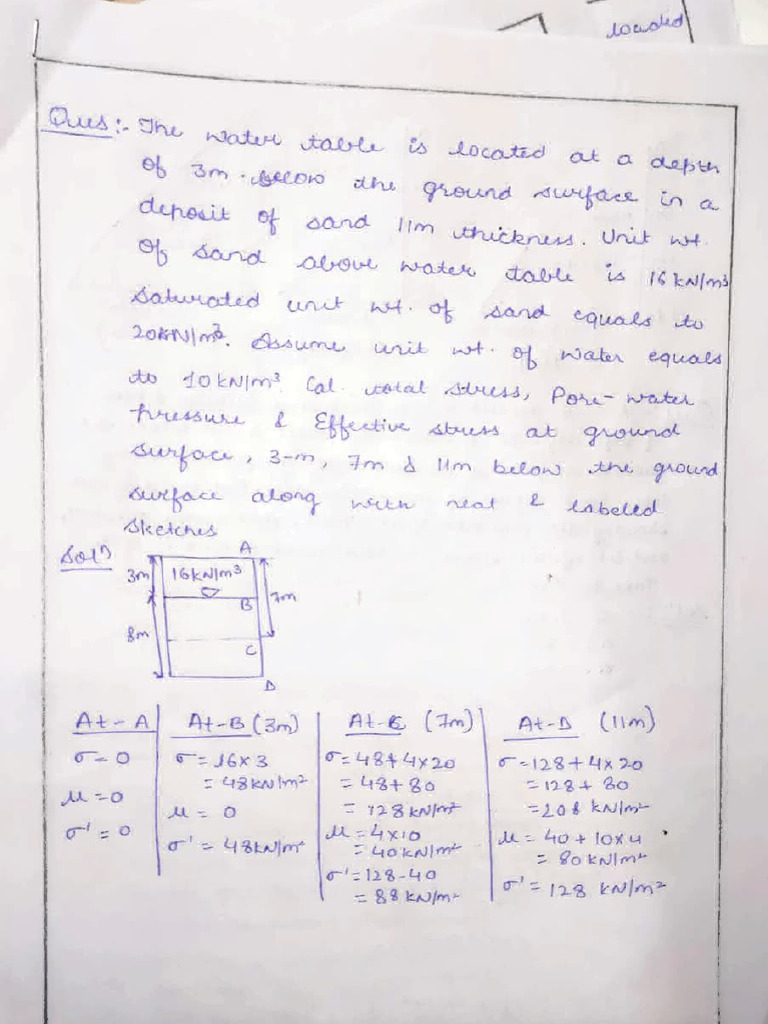 loaded
Ques:- The water table is located at a depth
of 3m below the ground surface in a
deposit of sand 11m thickness. Unit wt.
of sand above water table is 16 kN/m³
saturated unit wt. of sand equals to
20kN/m³. Assume unit wt. of water equals
to 10 kN/m³ Cal. total stress, Pore-water
pressure & Effective stress at ground
surface, 3-m, 7m & 11m below the ground
surface along with neat & labeled
sketches
Solⁿ
A
3m 16kN/m³
B 7m
8m
C
D
At-A At-B (3m) At-C (7m) At-D (11m)
σ=0 σ=16×3 σ=48+4×20 σ=128+4×20
=48kN/m² =48+80 =128+80
=128kN/m² =208 kN/m²
μ=0 μ=0 μ=4×10 μ=40+10×4
=40kN/m² =80kN/m²
σ'=0 σ'=48kN/m² σ'=128-40 σ'=128 kN/m²
=88kN/m²